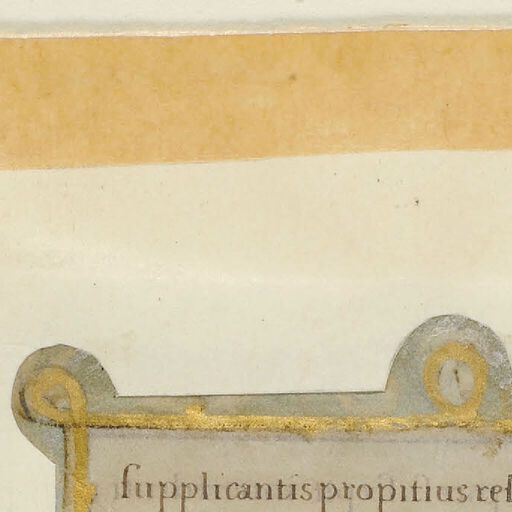 ſupplicantis propitius reſ